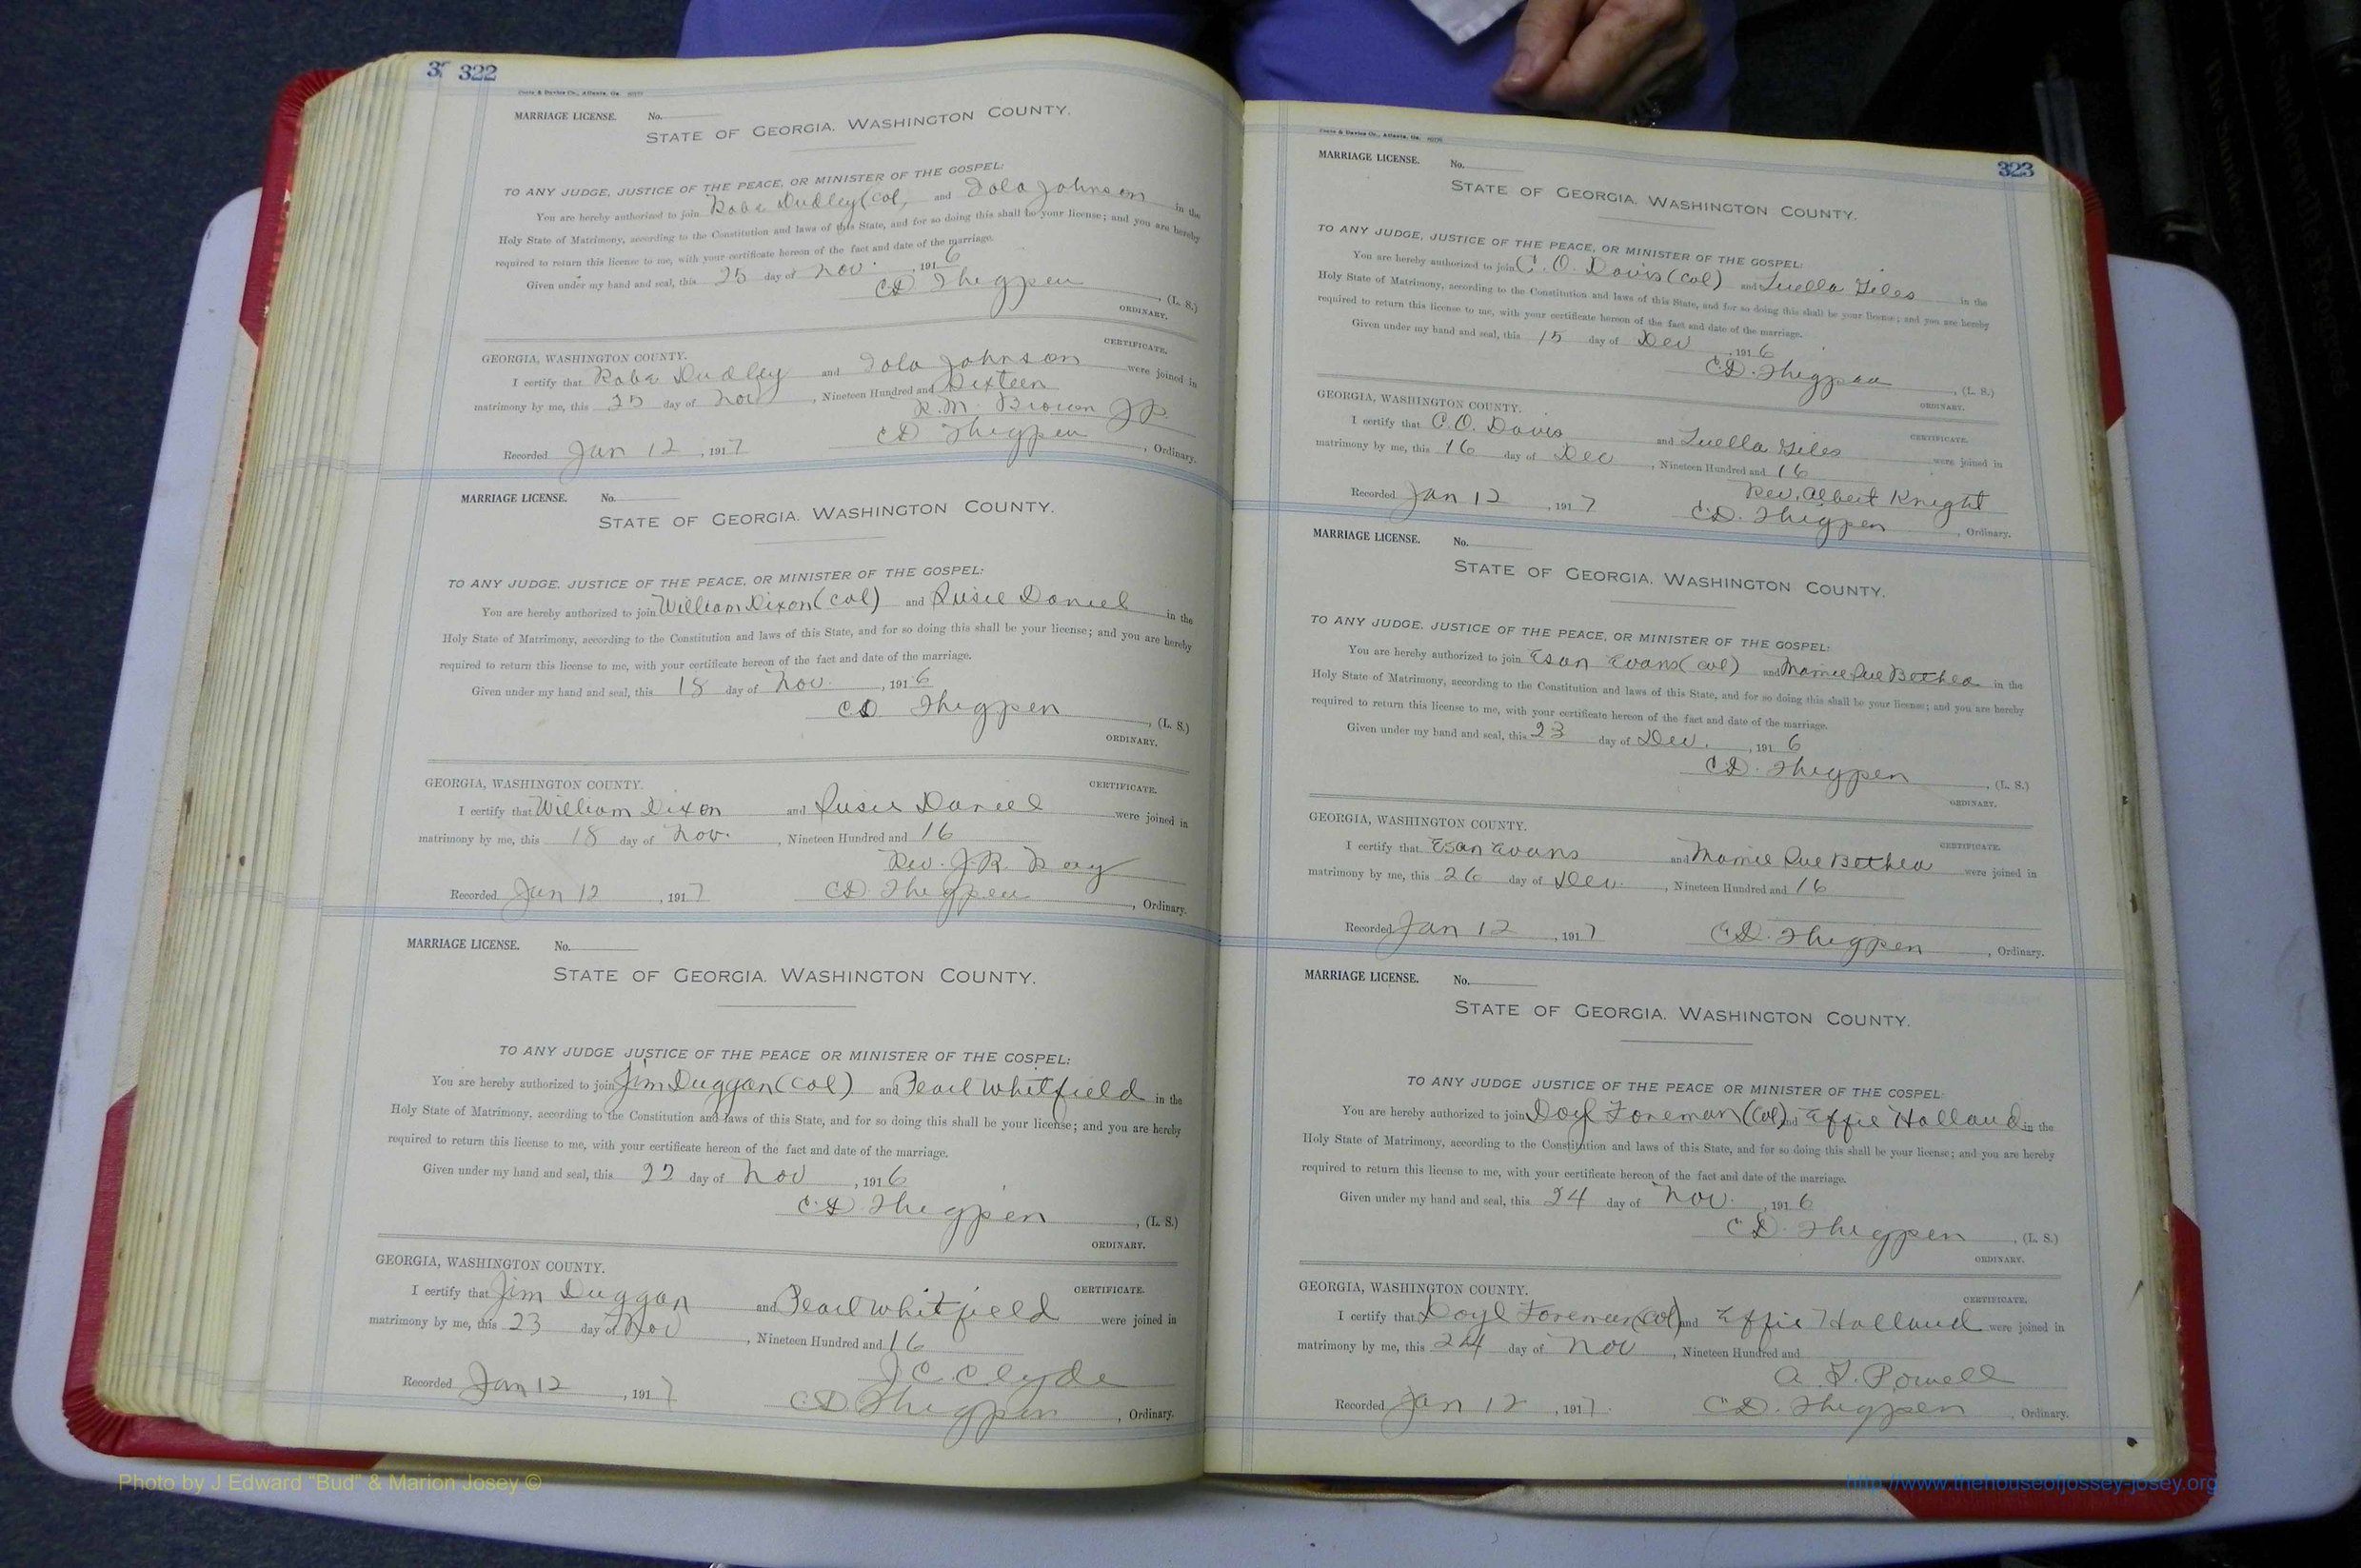 322
MARRIAGE LICENSE. No.
STATE OF GEORGIA, WASHINGTON COUNTY.
TO ANY JUDGE, JUSTICE OF THE PEACE, OR MINISTER OF THE GOSPEL:
You are hereby authorized to join Robt Dudley (Col, and Iola Johnson in the
Holy State of Matrimony, according to the Constitution and laws of this State, and for so doing this shall be your license; and you are hereby
required to return this license to me, with your certificate hereon of the fact and date of the marriage.
Given under my hand and seal, this 25 day of Nov. , 1916
CD Thigpen , (L. S.)
ORDINARY.
CERTIFICATE.
GEORGIA, WASHINGTON COUNTY.
I certify that Robt Dudley and Iola Johnson were joined in
matrimony by me, this 25 day of Nov , Nineteen Hundred and Sixteen
R.M. Brown JP
Recorded Jan 12 , 1917 CD Thigpen , Ordinary.
MARRIAGE LICENSE. No.
STATE OF GEORGIA, WASHINGTON COUNTY.
TO ANY JUDGE, JUSTICE OF THE PEACE, OR MINISTER OF THE GOSPEL:
You are hereby authorized to join William Dixon (Col) and Susie Daniel in the
Holy State of Matrimony, according to the Constitution and laws of this State, and for so doing this shall be your license; and you are hereby
required to return this license to me, with your certificate hereon of the fact and date of the marriage.
Given under my hand and seal, this 18 day of Nov. , 1916
CD Thigpen , (L. S.)
ORDINARY.
GEORGIA, WASHINGTON COUNTY. CERTIFICATE.
I certify that William Dixon and Susie Daniel were joined in
matrimony by me, this 18 day of Nov. , Nineteen Hundred and 16
Rev. J.R. Ray
Recorded Jan 12 , 1917 CD. Thigpen , Ordinary.
MARRIAGE LICENSE. No.
STATE OF GEORGIA, WASHINGTON COUNTY.
TO ANY JUDGE JUSTICE OF THE PEACE OR MINISTER OF THE GOSPEL:
You are hereby authorized to join Jim Duggan (Col) and Pearl Whitfield in the
Holy State of Matrimony, according to the Constitution and laws of this State, and for so doing this shall be your license; and you are hereby
required to return this license to me, with your certificate hereon of the fact and date of the marriage.
Given under my hand and seal, this 22 day of Nov , 1916
C.D. Thigpen , (L. S.)
ORDINARY.
GEORGIA, WASHINGTON COUNTY. CERTIFICATE.
I certify that Jim Duggan and Pearl Whitfield were joined in
matrimony by me, this 23 day of Nov , Nineteen Hundred and 16
J C. Clyde
Recorded Jan 12 , 1917 CD Thigpen , Ordinary.
323
MARRIAGE LICENSE. No.
STATE OF GEORGIA, WASHINGTON COUNTY.
TO ANY JUDGE, JUSTICE OF THE PEACE, OR MINISTER OF THE GOSPEL:
You are hereby authorized to join C. O. Davis (Col) and Luella Giles in the
Holy State of Matrimony, according to the Constitution and laws of this State, and for so doing this shall be your license; and you are hereby
required to return this license to me, with your certificate hereon of the fact and date of the marriage.
Given under my hand and seal, this 15 day of Dec , 1916
C.D. Thigpen , (L. S.)
ORDINARY.
GEORGIA, WASHINGTON COUNTY. CERTIFICATE.
I certify that C.O. Davis and Luella Giles were joined in
matrimony by me, this 16 day of Dec , Nineteen Hundred and 16
Rev. Albert Knight
Recorded Jan 12 , 1917 C.D. Thigpen , Ordinary.
MARRIAGE LICENSE. No.
STATE OF GEORGIA, WASHINGTON COUNTY.
TO ANY JUDGE, JUSTICE OF THE PEACE, OR MINISTER OF THE GOSPEL:
You are hereby authorized to join Esan Evans (Col) and Mamie Sue Bethea in the
Holy State of Matrimony, according to the Constitution and laws of this State, and for so doing this shall be your license; and you are hereby
required to return this license to me, with your certificate hereon of the fact and date of the marriage.
Given under my hand and seal, this 23 day of Dec. , 1916
C.D. Thigpen , (L. S.)
ORDINARY.
GEORGIA, WASHINGTON COUNTY. CERTIFICATE.
I certify that Esan Evans and Mamie Sue Bethea were joined in
matrimony by me, this 26 day of Dec. , Nineteen Hundred and 16
Recorded Jan 12 , 1917 C.D. Thigpen , Ordinary.
MARRIAGE LICENSE. No.
STATE OF GEORGIA, WASHINGTON COUNTY.
TO ANY JUDGE JUSTICE OF THE PEACE OR MINISTER OF THE GOSPEL:
You are hereby authorized to join Doyl Foreman (Col) and Effie Holland in the
Holy State of Matrimony, according to the Constitution and laws of this State, and for so doing this shall be your license; and you are hereby
required to return this license to me, with your certificate hereon of the fact and date of the marriage.
Given under my hand and seal, this 24 day of Nov. , 1916
C.D. Thigpen , (L. S.)
ORDINARY.
GEORGIA, WASHINGTON COUNTY. CERTIFICATE.
I certify that Doyl Foreman (Col) and Effie Holland were joined in
matrimony by me, this 24 day of Nov , Nineteen Hundred and
A. L. Powell
Recorded Jan 12 , 1917. C.D. Thigpen , Ordinary.
Photo by J Edward "Bud" & Marion Josey ©
http://www.thehouseofjossey-josey.org